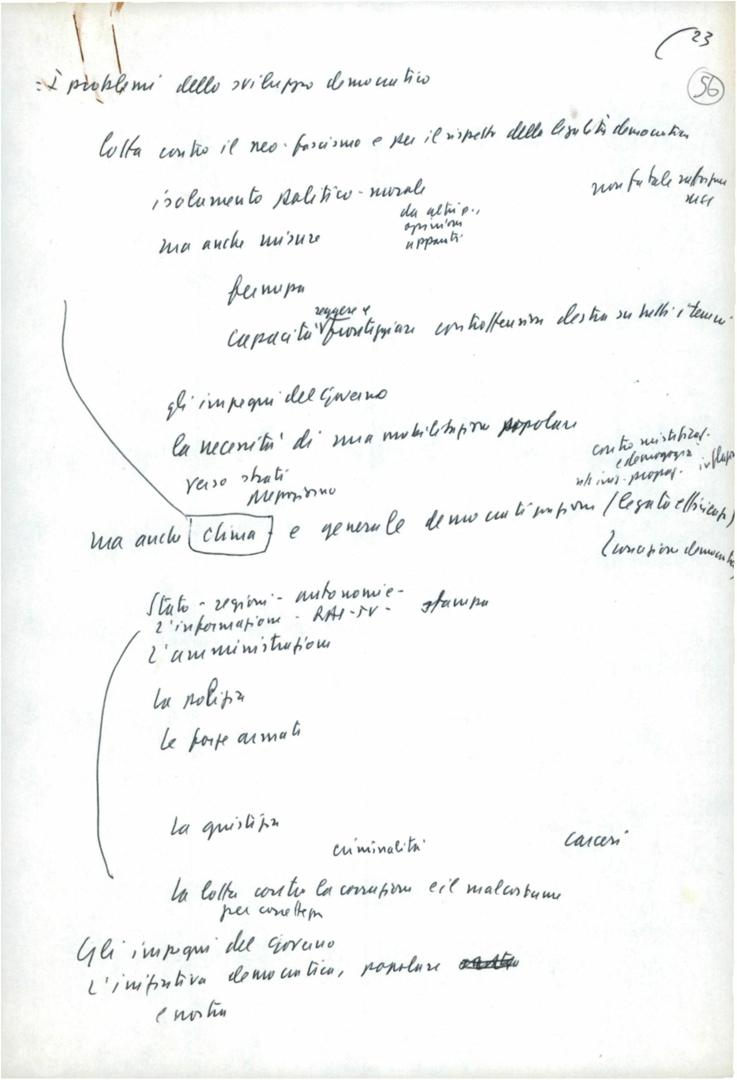 23
56
I problemi dello sviluppo democratico
lotta contro il neo-fascismo e per il rispetto della legalità democratica
isolamento politico-morale
non fatale
ma anche misure
da altri p.,
opinioni
apparati
fermezza
reggere e
capacità fronteggiare controffensiva destra su tutti i terreni
gli impegni del Governo
la necessità di una mobilitazione popolare
verso strati
Mezzogiorno
contro mistificaz.
e demagogia
ma anche clima e generale democratizzazione (legato efficienza)
Stato - regioni - autonomie -
L'informazione - RAI-TV - stampa
L'amministrazione
La polizia
Le forze armate
La giustizia
criminalità
carceri
La lotta contro la corruzione e il malcostume
per correttezza
Gli impegni del Governo
L'iniziativa democratica, popolare
e nostra